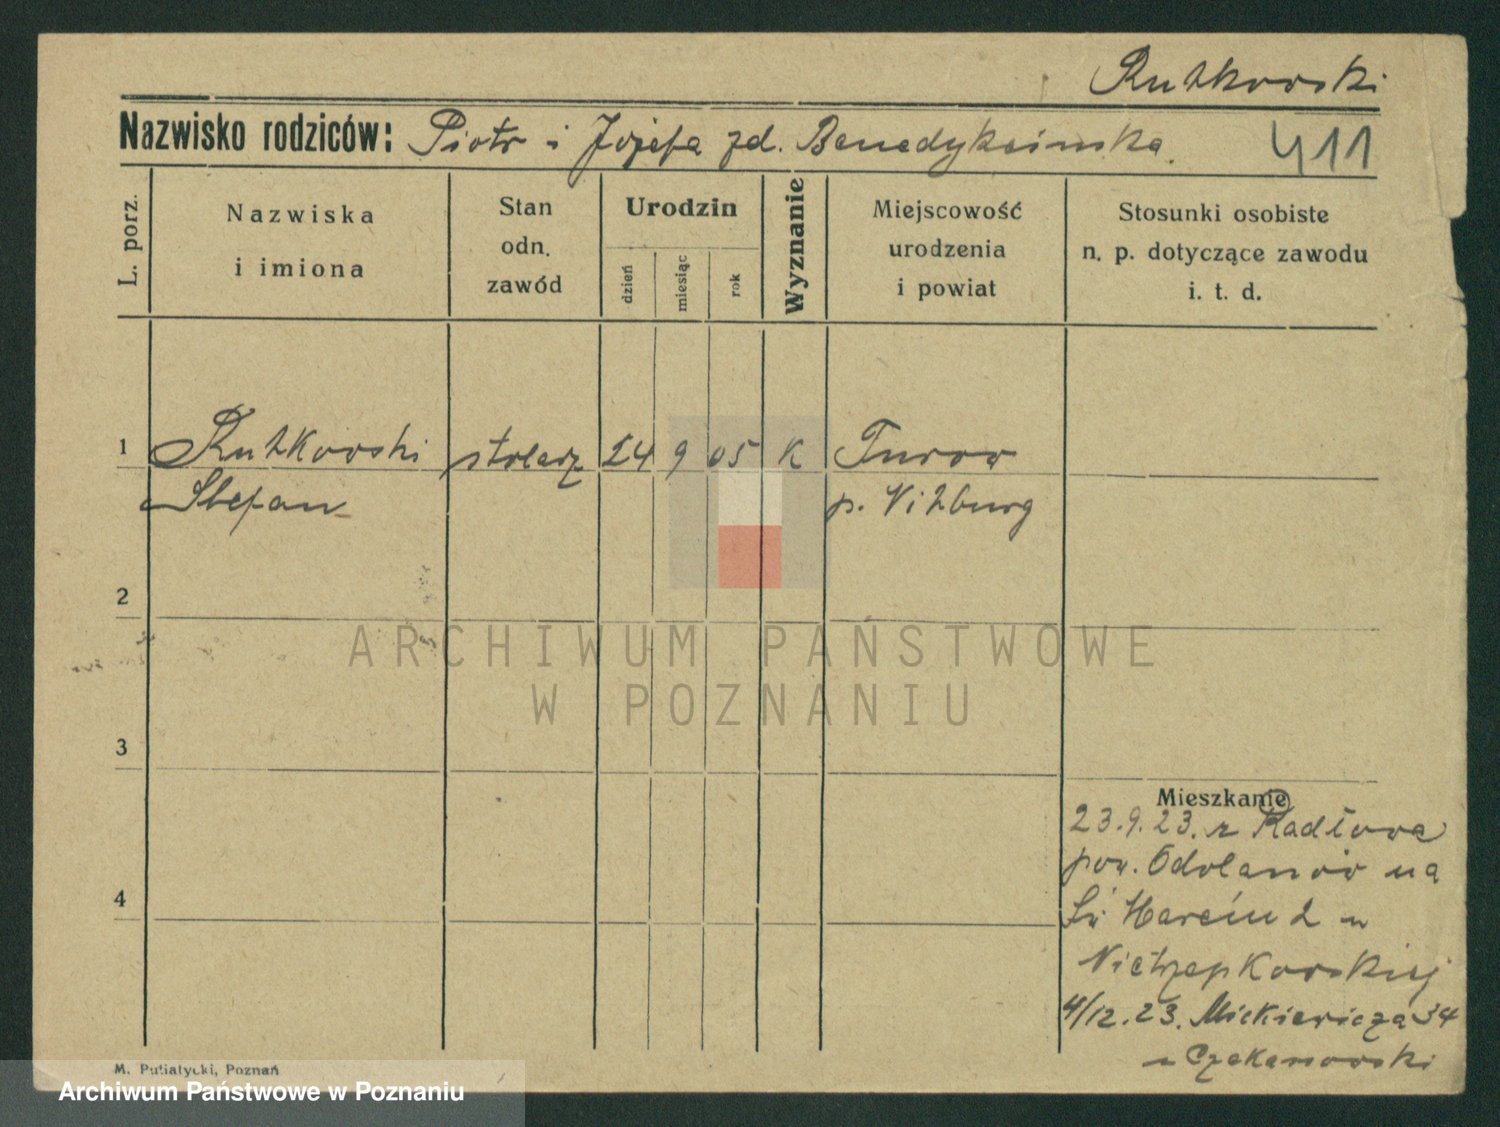 Rutkowski
Nazwisko rodziców: Piotr i Józefa zd. Benedykcinska. 411
L. porz.
Nazwiska
i imiona
Stan
odn.
zawód
Urodzin
dzień
miesiąc
rok
Wyznanie
Miejscowość
urodzenia
i powiat
Stosunki osobiste
n. p. dotyczące zawodu
i. t. d.
1 Rutkowski stolarz 24 9 05 K Turow
Stefan p. Vitzburg
2
ARCHIWUM PAŃSTWOWE
W POZNANIU
3
Mieszkanie
23.9.23. z Radłowa
pow. Odolanów na
Św Marcin 2 u
4
4/12.23. Mickiewicza 34
u Czekanowski
M. Putiatycki, Poznań
Archiwum Państwowe w Poznaniu